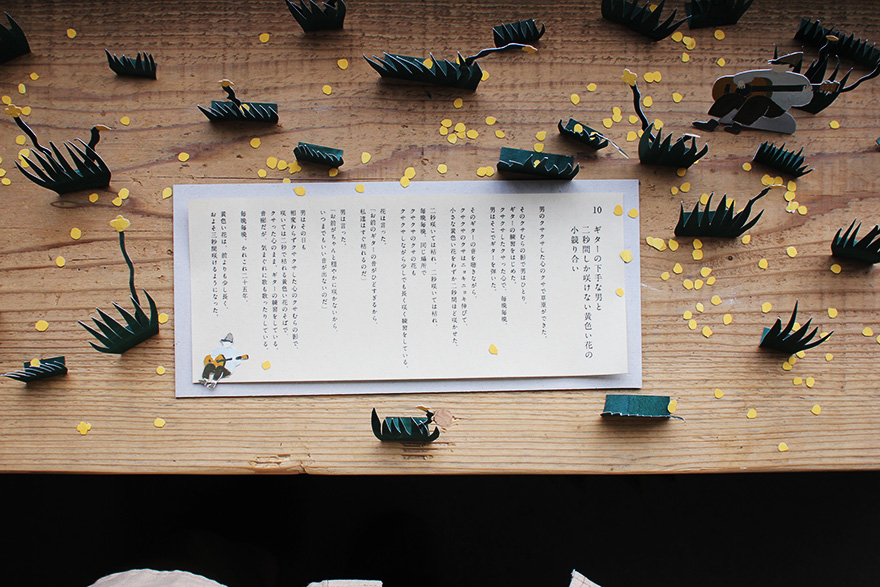 10
ギターの下手な男と
二秒間しか咲けない黄色い花の
小競り合い
男のクサクサした心のクサで草叢ができた。
そのクサむらの影で男はひとり、
ギターの練習をはじめた。
クサクサしたクサった心で、毎晩毎晩、
男はそこでギターを弾いた。
そのギターの音を聴きながら
クサクサのクサはニョキニョキ伸びて、
小さな黄色い花をわずか二秒間ほど咲かせた。
二秒咲いては枯れ、二秒咲いては枯れ、
毎晩毎晩、同じ場所で
クサクサのクサの花も
クサクサしながら少しでも長く咲く練習をしている。
花は言った。
「お前のギターの音がひどすぎるから、
私達はすぐ枯れるのだ」
男は言った。
「お前がちゃんと穏やかに咲かないから、
いつまでもいい音がでないのだ」
男はその日も
相変わらずクサクサした心のクサむらの影で、
咲いては二秒で枯れる黄色い花のそばで、
クサった心のまま、ギターの練習をしている。
音痴だが、気まぐれに歌も歌ったりしている。
毎晩毎晩、かれこれ二十五年。
黄色い花は、前よりも少し長く、
およそ三秒間咲けるようになった。